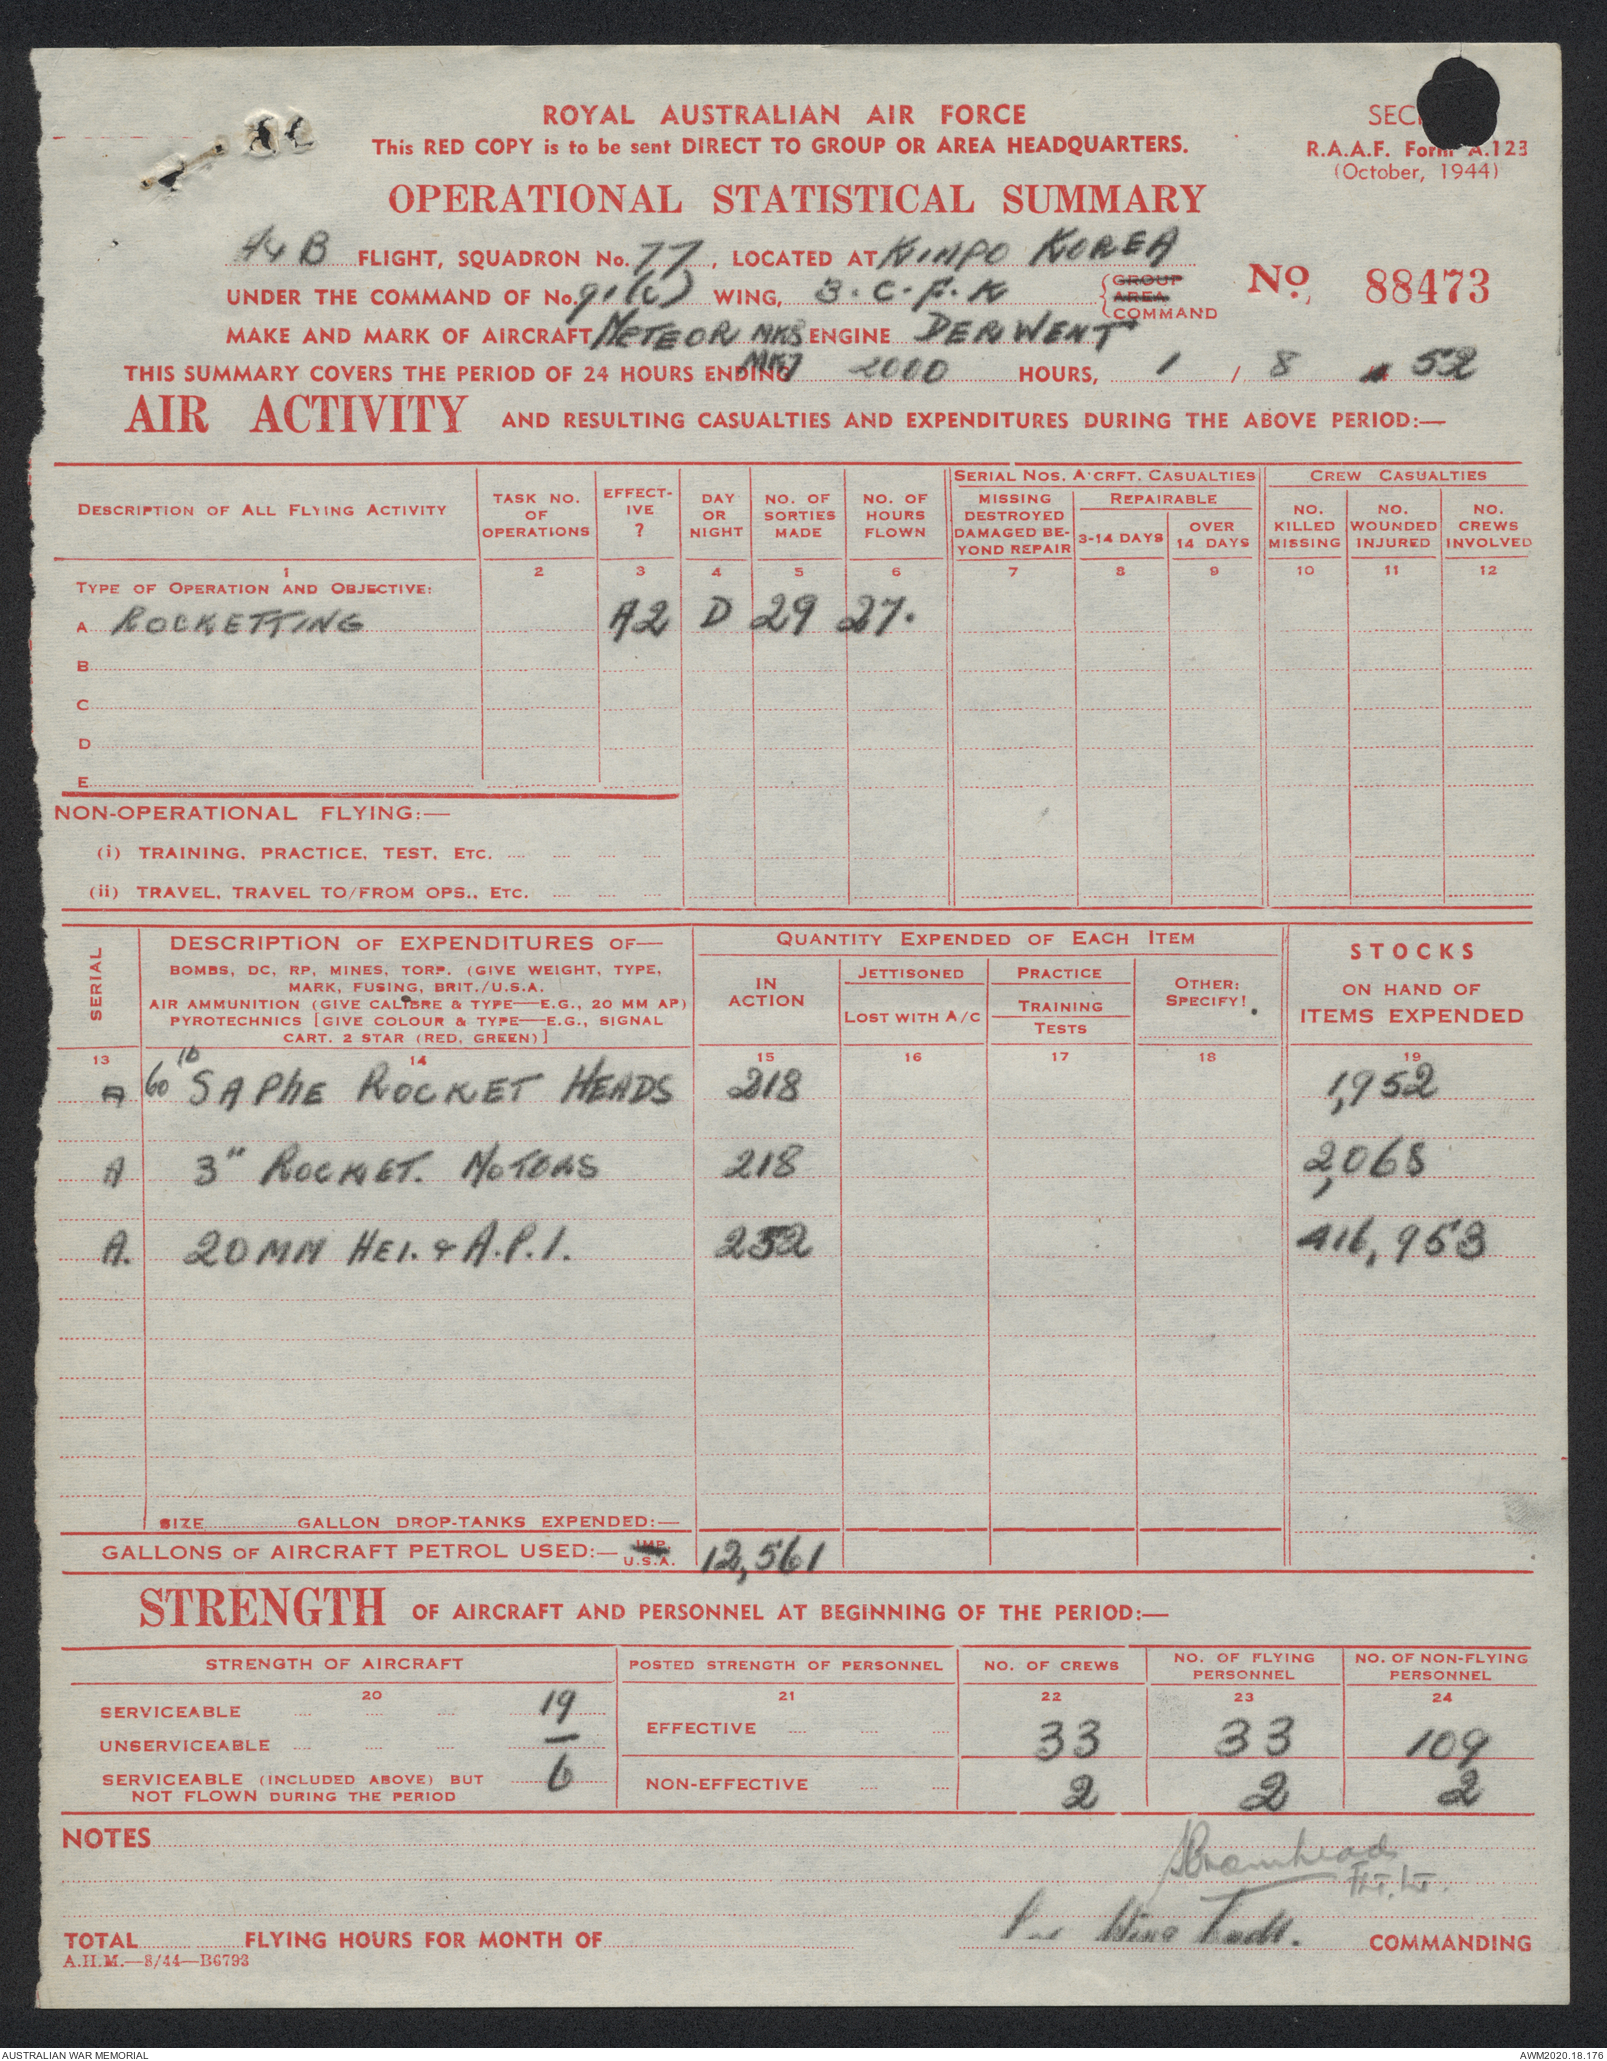 ROYAL AUSTRALIAN AIR FORCE
This RED COPY is to be sent DIRECT TO GROUP OR AREA HEADQUARTERS.
R.A.A.F. Form A.123
(October, 1944)
OPERATIONAL STATISTICAL SUMMARY
A&B FLIGHT, SQUADRON No. 77, LOCATED AT KIMPO KOREA
UNDER THE COMMAND OF No. 91(C) WING, 3.C.F.K {GROUP AREA COMMAND
No. 88473
MAKE AND MARK OF AIRCRAFT METEOR MK8 ENGINE DERWENT
MK7
THIS SUMMARY COVERS THE PERIOD OF 24 HOURS ENDING 2000 HOURS, 1 / 8 52
AIR ACTIVITY AND RESULTING CASUALTIES AND EXPENDITURES DURING THE ABOVE PERIOD:—
DESCRIPTION OF ALL FLYING ACTIVITY
TASK NO. OF OPERATIONS
EFFECTIVE ?
DAY OR NIGHT
NO. OF SORTIES MADE
NO. OF HOURS FLOWN
SERIAL NOS. A'CRFT. CASUALTIES
MISSING DESTROYED DAMAGED BEYOND REPAIR
REPAIRABLE
3-14 DAYS
OVER 14 DAYS
CREW CASUALTIES
NO. KILLED MISSING
NO. WOUNDED INJURED
NO. CREWS INVOLVED
1 2 3 4 5 6 7 8 9 10 11 12
TYPE OF OPERATION AND OBJECTIVE:
A ROCKETTING A2 D 29 27.
B
C
D
E
NON-OPERATIONAL FLYING:—
(i) TRAINING, PRACTICE, TEST, ETC.
(ii) TRAVEL, TRAVEL TO/FROM OPS., ETC.
SERIAL
DESCRIPTION OF EXPENDITURES OF—
BOMBS, DC, RP, MINES, TORP. (GIVE WEIGHT, TYPE,
MARK, FUSING, BRIT./U.S.A.
AIR AMMUNITION (GIVE CALIBRE & TYPE—E.G., 20 MM AP)
PYROTECHNICS [GIVE COLOUR & TYPE—E.G., SIGNAL
CART. 2 STAR (RED, GREEN)]
QUANTITY EXPENDED OF EACH ITEM
IN ACTION
JETTISONED
LOST WITH A/C
PRACTICE
TRAINING
TESTS
OTHER: SPECIFY!
STOCKS
ON HAND OF
ITEMS EXPENDED
13 14 15 16 17 18 19
A 60 lb SAPHE ROCKET HEADS 218 1,952
A 3" ROCKET. MOTORS 218 2,068
A. 20MM HEI. & A.P.I. 252 416,953
SIZE GALLON DROP-TANKS EXPENDED:—
GALLONS OF AIRCRAFT PETROL USED:— IMP. U.S.A. 12,561
STRENGTH OF AIRCRAFT AND PERSONNEL AT BEGINNING OF THE PERIOD:—
STRENGTH OF AIRCRAFT
POSTED STRENGTH OF PERSONNEL
NO. OF CREWS
NO. OF FLYING PERSONNEL
NO. OF NON-FLYING PERSONNEL
20 21 22 23 24
SERVICEABLE 19
UNSERVICEABLE —
SERVICEABLE (INCLUDED ABOVE) BUT NOT FLOWN DURING THE PERIOD 6
EFFECTIVE 33 33 109
NON-EFFECTIVE 2 2 2
NOTES
FLT. LT.
TOTAL FLYING HOURS FOR MONTH OF COMMANDING
A.H.M.—8/44—B6793
AUSTRALIAN WAR MEMORIAL
AWM2020.18.176